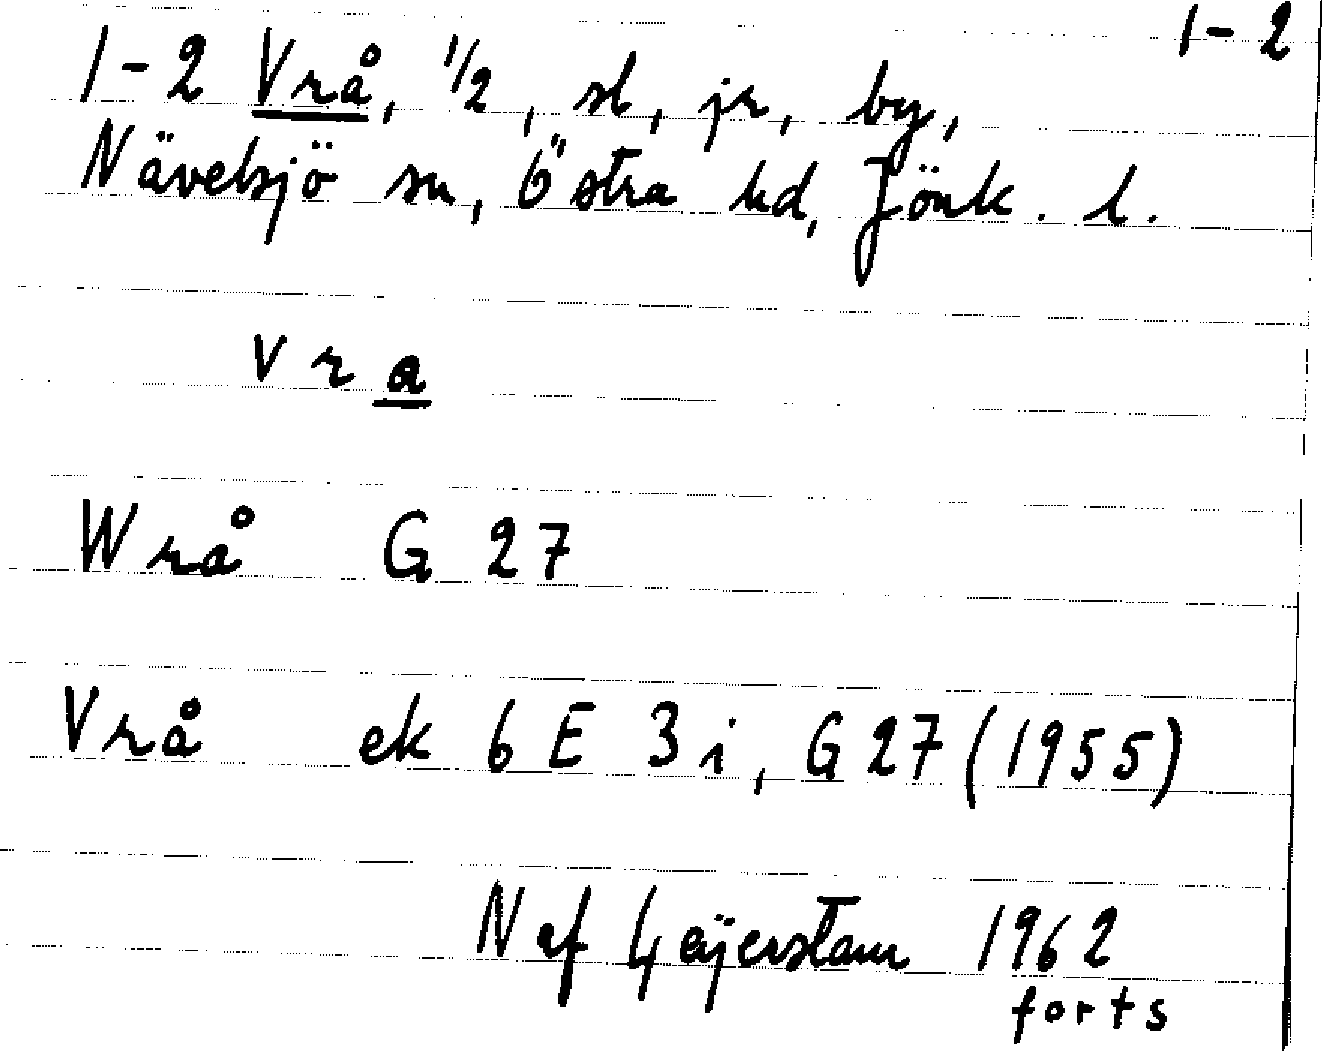 1-2
1-2 Vrå, 1/2, sl, jr, by,
Nävelsjö sn, Östra hd, Jönk. l.
v r a
Wrå G 27
Vrå ek 6 E 3 i, G 27 (1955)
N af Geijerstam 1962
forts